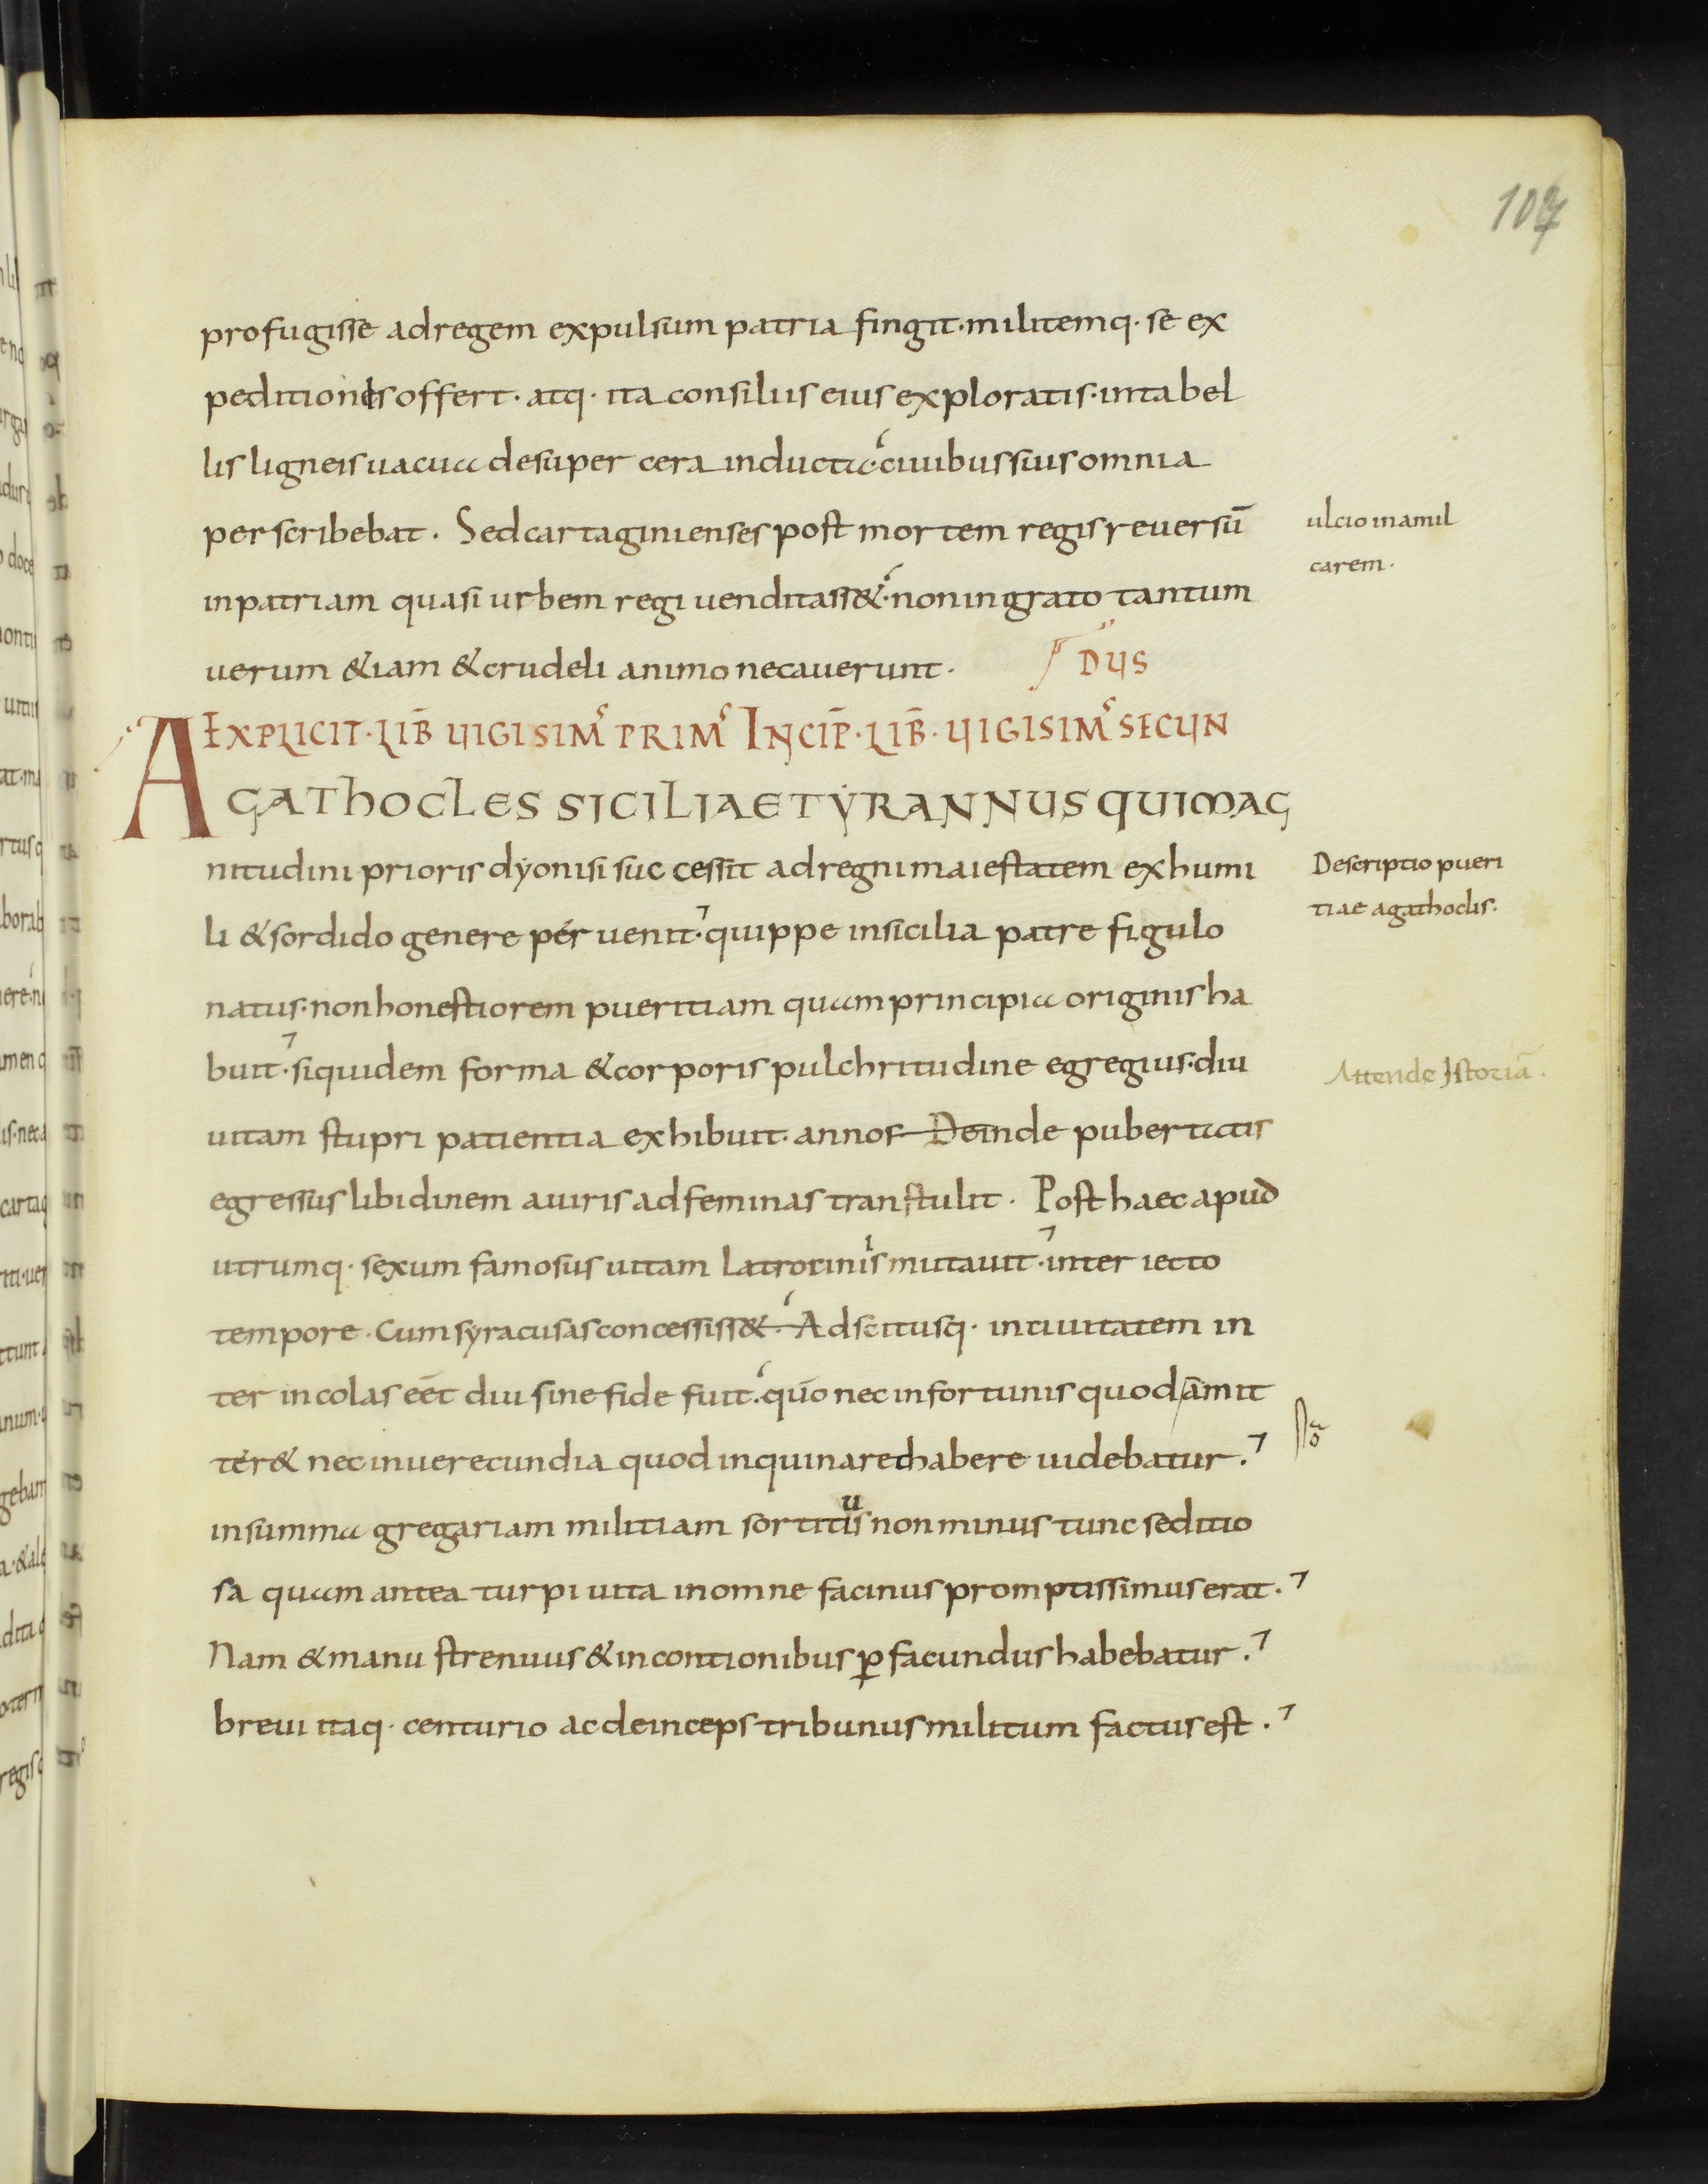 107
profugisse adregem expulsum patria fingit·militemq·se ex
peditionis offert·atq·ita consiliis eius exploratis·intabel
lis ligneis uacua desuper cera inducta·ciuibus suis omnia
perscribebat. Sed cartaginienses post mortem regis reuersū
inpatriam quasi urbem regi uenditass&·non ingrato tantum
uerum &iam & crudeli animo necauerunt.
DUS
EXPLICIT·LIB̄ UIGISIMʼ PRIMʼ INCIP̄·LIB̄·UIGISIMʼ SECUN
AGATHOCLES SICILIAE TẎRANNUS QUI MAG
nitudini prioris dẏonisi successit adregni maiestatem exhumi
li & sordido genere peruenit·quippe insicilia patre figulo
natus·non honestiorem pueritiam quam principia originis ha
buit·siquidem forma & corporis pulchritudine egregius·diu
uitam stupri patientia exhibuit·annos Deinde pubertatis
egressus libidinem auiris adfeminas transtulit. Post haec apud
utrumq·sexum famosus uitam latrociniis mutauit·inter iecto
tempore·Cum syracusas concessiss&·Adscitusq·inciuitatem in
ter incolas eēt diu sine fide fuit·quō nec infortunis quod amit
ter& nec inuerecundia quod inquinar& habere uidebatur.
insumma gregariam militiam sortitus non minus tunc seditio
sa quam antea turpi uita inomne facinus promptissimus erat.
Nam & manu strenuus & incontionibus ꝑfacundus habebatur.
breui itaq·centurio ac deinceps tribunus militum factus est.
ulcio inamil
carem.
Descriptio pueri
tiae agathoclis.
Attende Istoriā.